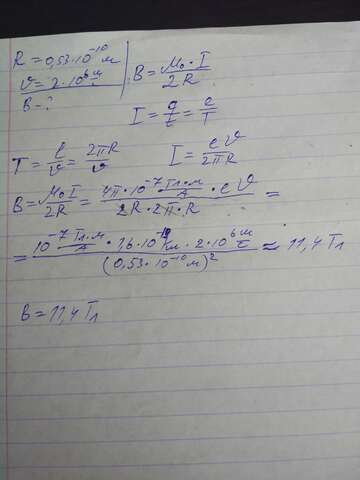 R = 0,53·10⁻¹⁰ м
v = 2·10⁶ м/с
B - ?
B = μ₀·I / 2R
I = q/t = e/T
T = l/v = 2πR/v
I = ev / 2πR
B = μ₀I / 2R = 4π·10⁻⁷ Тл·м/А · ev / 2R·2π·R =
= 10⁻⁷ Тл·м/А · 1,6·10⁻¹⁹ Кл · 2·10⁶ м/с / (0,53·10⁻¹⁰ м)² ≈ 11,4 Тл
B = 11,4 Тл